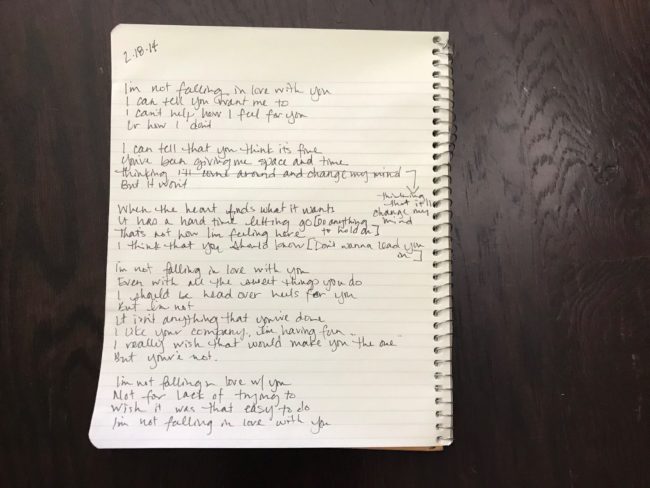 2.18.14
I'm not falling in love with you
I can tell you want me to
I can't help how I feel for you
Or how I don't
I can tell that you think it's fine
You've been giving me space and time
thinking I'll turn around and change my mind
thinking that it'll change my mind
But it won't
When the heart finds what it wants
It has a hard time letting go [Do anything to hold on]
That's not how I'm feeling here
I think that you should know [Don't wanna lead you on]
I'm not falling in love with you
Even with all the sweet things you do
I should be head over heels for you
But I'm not
It isn't anything that you've done
I like your company, I'm having fun
I really wish that would make you the one
But you're not.
I'm not falling in love w/ you
Not for lack of trying to
Wish it was that easy to do
I'm not falling in love with you